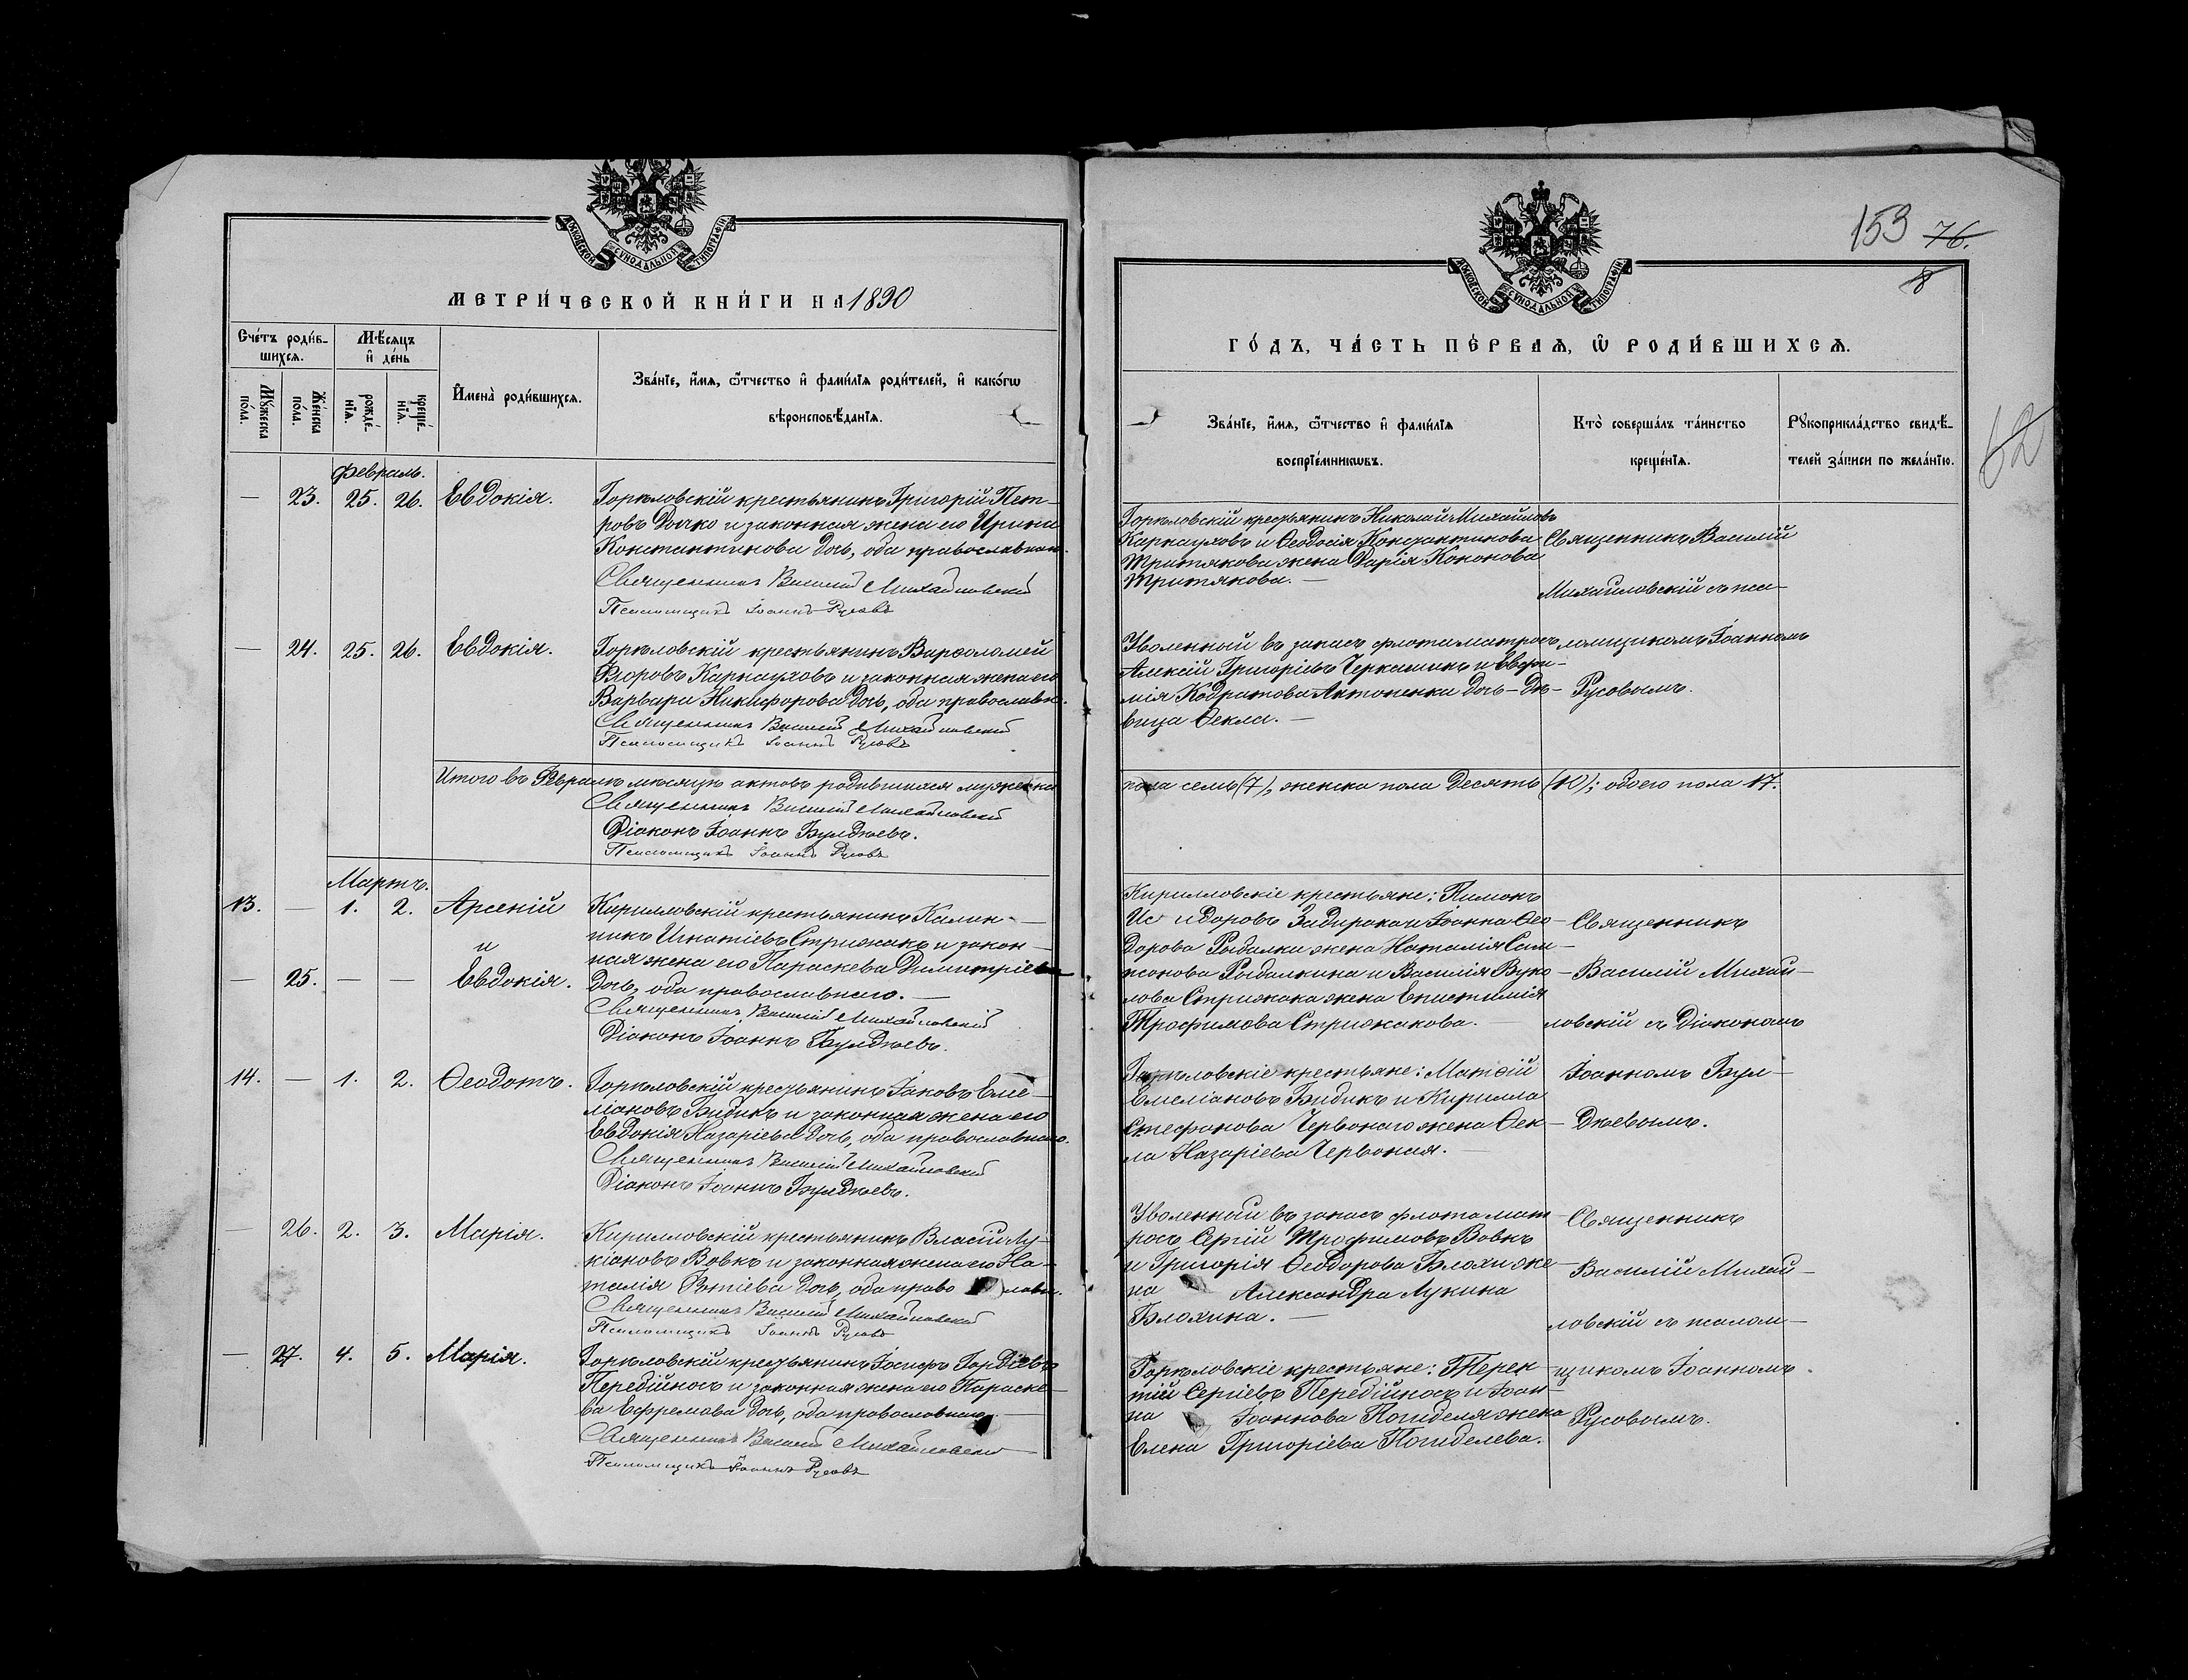 МОСКОВСКОЙ СУНОДАЛЬНОЙ ТИПОГРАФІИ
МЕТРИ́ЧЕСКОЙ КНИ́ГИ НА 1890
Сче́тъ роди́в-
шихсѧ.
Мѣ́сѧцъ
и҆ де́нь
И҆мена̀ роди́вшихсѧ.
Зва́нїе, и҆́мѧ, ѻ҆́тчество и҆ фами́лїѧ роди́телей, и҆ како́гѡ
вѣроисповѣ́данїѧ.
Мꙋ́жеска
по́ла.
Же́нска
по́ла.
рожде́-
нїѧ.
креще́-
нїѧ.
Февраль.
— 23. 25. 26. Евдокія.
Горѣловскій крестьянинъ Григорій Пет-
ровъ Дочко и законная жена его Ирина
Константинова дочь, оба православнаго.
Священникъ Василій Михайловскій
Псаломщикъ Іоаннъ Русовъ
— 24. 25. 26. Евдокія.
Горѣловскій крестьянинъ Варѳоломей
Карнауховъ и законная жена его
Варвара Никифорова дочь, оба православн.
Священникъ Василій Михайловскій
Псаломщикъ Іоаннъ Русовъ
Итого въ Февралѣ мѣсяцѣ актовъ родившихся мужеска
Священникъ Василій Михайловскій
Діаконъ Іоаннъ Булджевъ.
Псаломщикъ Іоаннъ Русовъ
Мартъ.
13. — 1. 2. Арсеній
и
— 25. — — Евдокія.
Кирилловскій крестьянинъ Калин-
никъ Игнатіевъ Стрижакъ и закон-
ная жена его Параскева Димитріева
дочь, оба православнаго.—
Священникъ Василій Михайловскій
Діаконъ Іоаннъ Булджевъ.
14. — 1. 2. Ѳеодотъ.
Горѣловскій крестьянинъ Іаковъ Еме-
ліановъ Бидикъ и законная жена его
Евдокія Назаріева дочь, оба православнаго.
Священникъ Василій Михайловскій
Діаконъ Іоаннъ Булджевъ.
— 26. 2. 3. Марія.
Кирилловскій крестьянинъ Власій Лу-
кіановъ Вовкъ и законная жена его На-
талія Фотіева дочь, оба право славн.
Священникъ Василій Михайловскій
Псаломщикъ Іоаннъ Русовъ
— 27. 4. 5. Марія.
Горѣловскій крестьянинъ Іосифъ Гордіевъ
Передійносъ и законная жена его Параске-
ва Ефремова дочь, оба православнаго.—
Священникъ Василій Михайловскій
Псаломщикъ Іоаннъ Русовъ
153 76.
8
МОСКОВСКОЙ СУНОДАЛЬНОЙ ТИПОГРАФІИ
62
ГО́ДЪ, ЧА́СТЬ ПЕ́РВАѦ, Ѡ҆ РОДИ́ВШИХСѦ.
Зва́нїе, и҆́мѧ, ѻ҆́тчество и҆ фами́лїѧ
воспрїе́мникѡвъ.
Кто̀ соверша́лъ та́инство
креще́нїѧ.
Рꙋкоприкла́дство свидѣ́-
телей за́писи по жела́нїю.
Горѣловскій крестьянинъ Николай Михайловъ
Карнауховъ и Ѳеодосія Константинова
Тритякова жена Дарія Кононова
Тритякова.—
Священникъ Василій
Михайловскій съ пса-
Уволенный въ запасъ флота матросъ
Алексій Григоріевъ Черкашинъ и Евфи-
мія Кодратова Антоненка дочь-дѣ-
вица Ѳекла.—
ломщикомъ Іоанномъ
Русовымъ.
пола семь (7), женска пола десять (10); обоего пола 17.
Кирилловскіе крестьяне: Пименъ
Ис идоровъ Задирака и Іоанна Ѳео-
дорова Рыбалки жена Наталія Сам-
псонова Рыбалкина и Василія Вуко-
лова Стрижака жена Епистимія
Трофимова Стрижакова.—
Священникъ
Василій Михай-
ловскій съ Діакономъ
Горѣловскіе крестьяне: Матѳій
Емеліановъ Бидикъ и Кирилла
Стефанова Червонаго жена Ѳек-
ла Назаріева Червоная.—
Іоанномъ Бул-
джевымъ.
Уволенный въ запасъ флота мат-
росъ Сергій Трофимовъ Вовкъ
и Григорія Ѳеодорова Блохи же-
на Александра Лукина
Блохина.—
Священникъ
Василій Михай-
ловскій съ псалом-
Горѣловскіе крестьяне: Терен-
тій Сергіевъ Передійносъ и Іоан-
на Іоаннова Погиделя жена
Елена Григоріева Погиделева.
щикомъ Іоанномъ
Русовымъ.